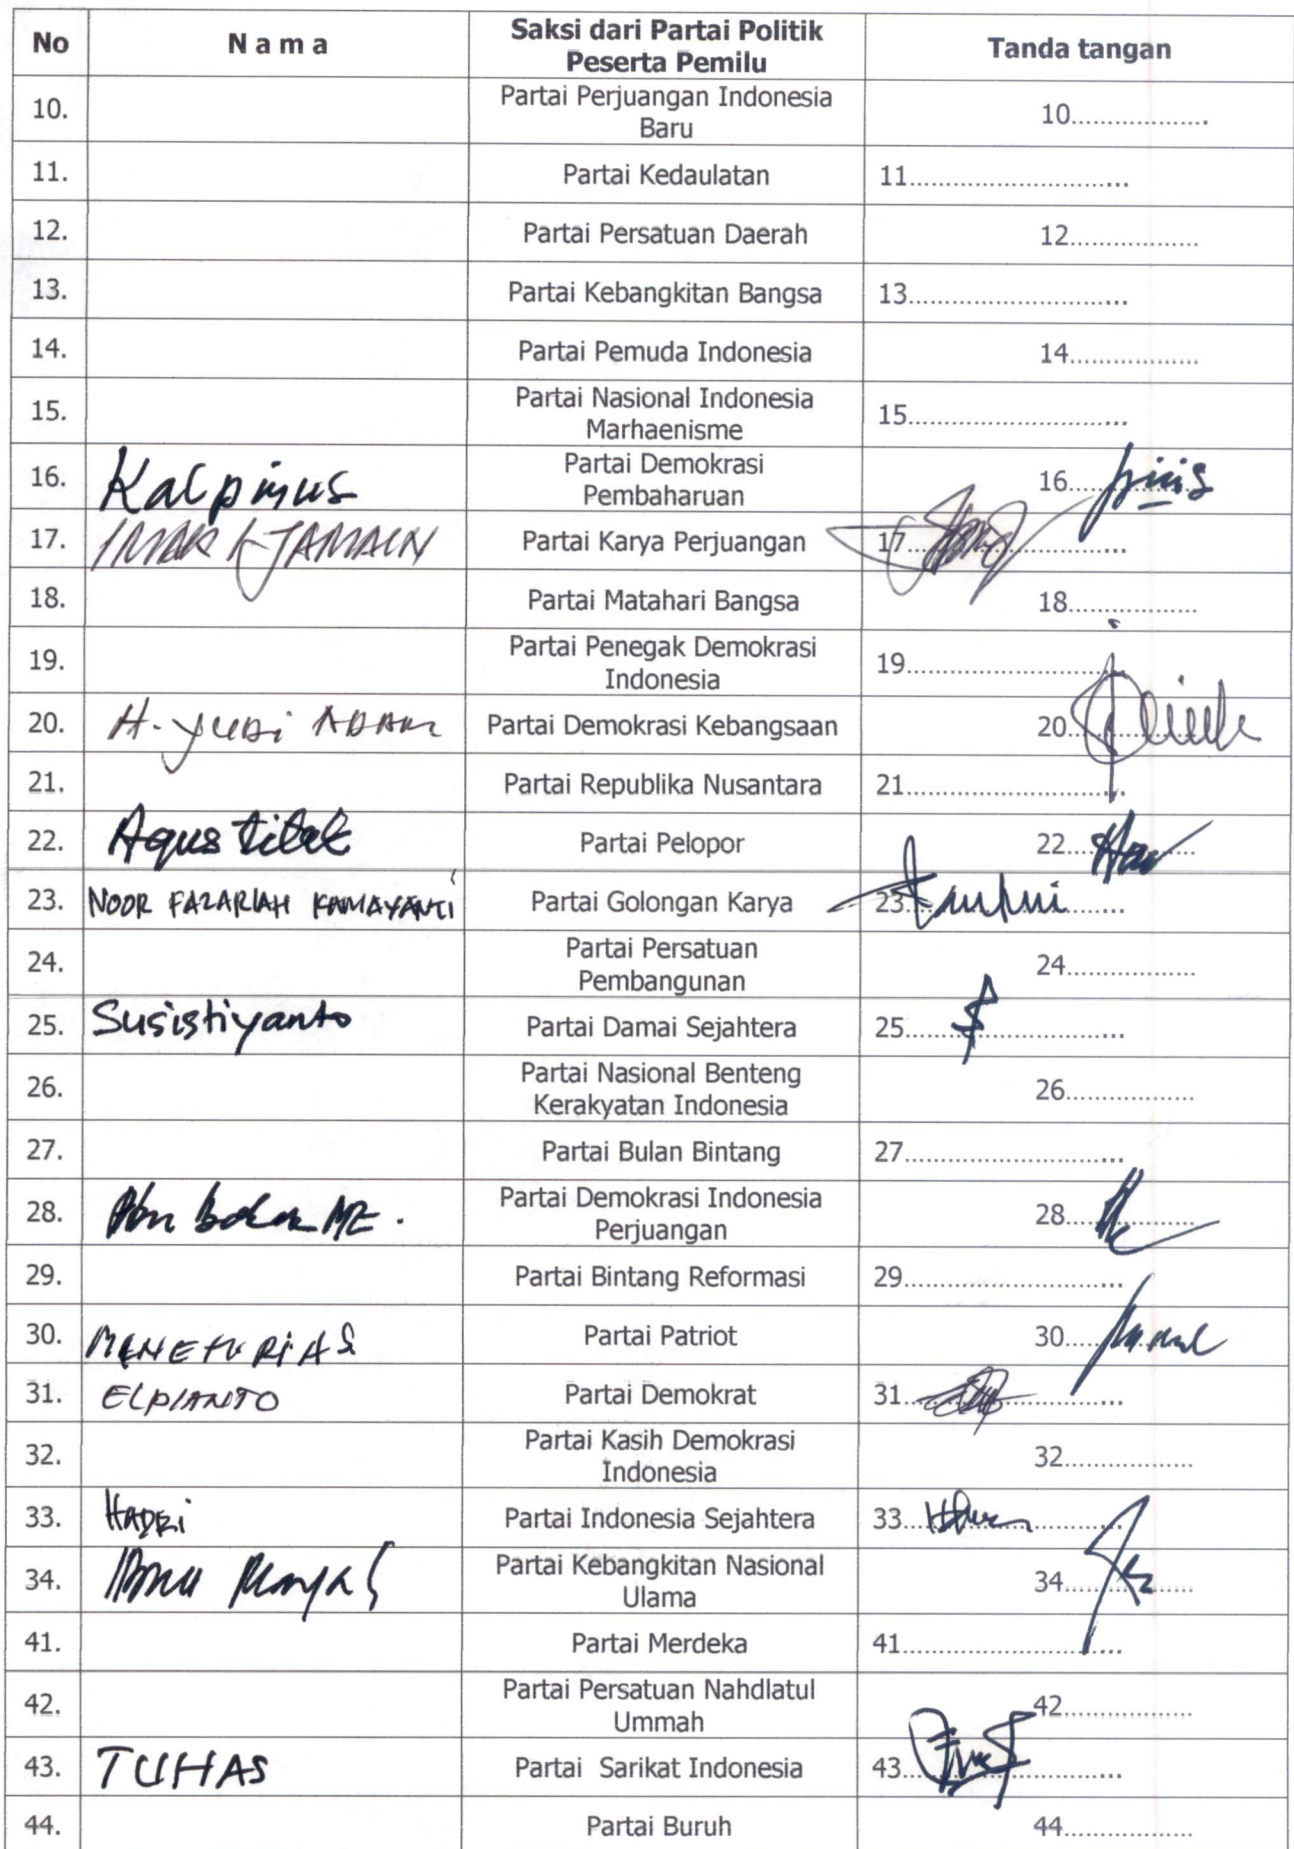 No
N a m a
Saksi dari Partai Politik
Peserta Pemilu
Tanda tangan
10.
Partai Perjuangan Indonesia
Baru
10...................
11.
Partai Kedaulatan
11..............................
12.
Partai Persatuan Daerah
12..................
13.
Partai Kebangkitan Bangsa
13..............................
14.
Partai Pemuda Indonesia
14..................
15.
Partai Nasional Indonesia
Marhaenisme
15..............................
16.
Kalpinus
Partai Demokrasi
Pembaharuan
16..................
17.
Partai Karya Perjuangan
17..............................
18.
Partai Matahari Bangsa
18..................
19.
Partai Penegak Demokrasi
Indonesia
19..............................
20.
H. Yudi ADAM
Partai Demokrasi Kebangsaan
20..................
21.
Partai Republika Nusantara
21..............................
22.
Agus
Partai Pelopor
22..................
23.
NOOR FAZARIAH KAMAYANTI
Partai Golongan Karya
23..............................
24.
Partai Persatuan
Pembangunan
24..................
25.
Susistiyanto
Partai Damai Sejahtera
25..............................
26.
Partai Nasional Benteng
Kerakyatan Indonesia
26..................
27.
Partai Bulan Bintang
27..............................
28.
Partai Demokrasi Indonesia
Perjuangan
28..................
29.
Partai Bintang Reformasi
29..............................
30.
Partai Patriot
30..................
31.
ELPIANTO
Partai Demokrat
31..............................
32.
Partai Kasih Demokrasi
Indonesia
32..................
33.
HADRi
Partai Indonesia Sejahtera
33..............................
34.
Partai Kebangkitan Nasional
Ulama
34..................
41.
Partai Merdeka
41..............................
42.
Partai Persatuan Nahdlatul
Ummah
42..................
43.
TUHAS
Partai Sarikat Indonesia
43..............................
44.
Partai Buruh
44..................